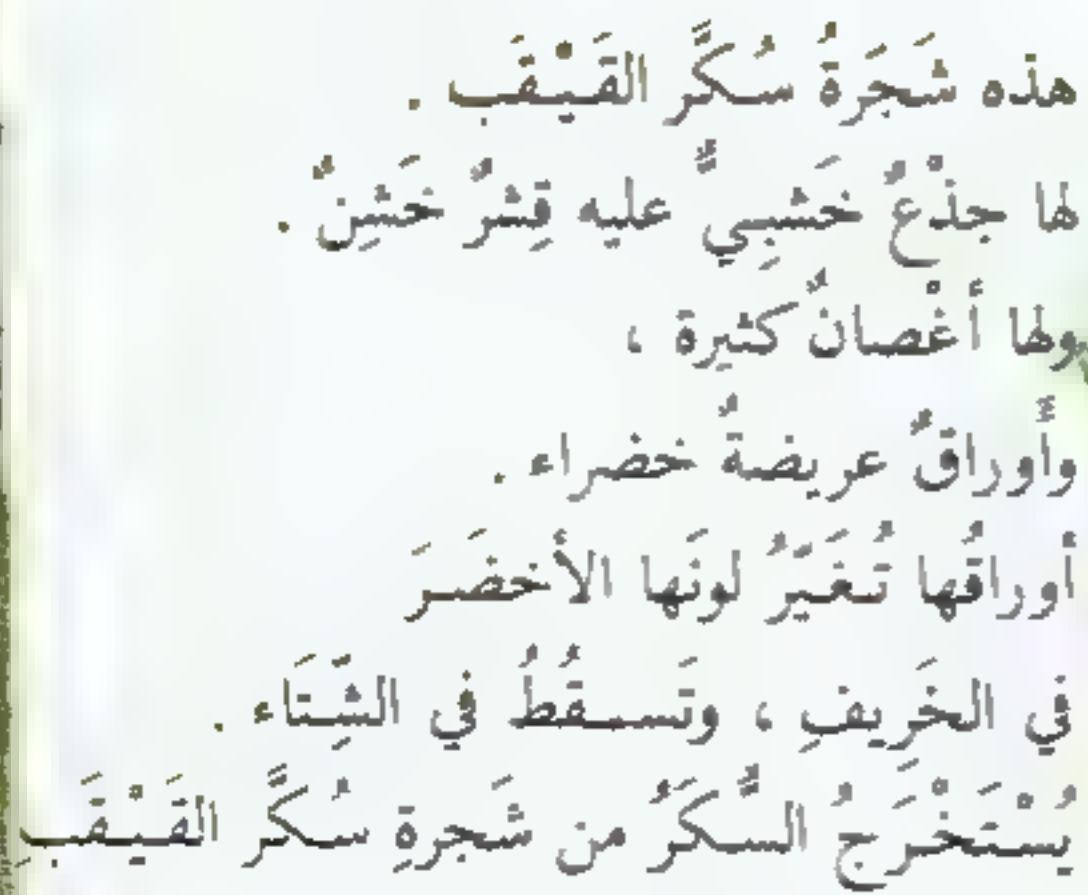 هذه شَجَرَةُ سُكَّر القَيْقَب .
لها جذْعٌ خَشبِيٌّ عليه قِشرٌ خَشِنٌ .
ولها أغْصانٌ كثيرة ،
وأَوراقٌ عريضةٌ خضراء .
أوراقُها تُغَيِّرُ لونَها الأخضَرَ
في الخَرِيفِ ، وتَسقُطُ في الشِّتَاء .
يُسْتَخْرَجُ السُّكَّرُ من شَجرةِ سُكَّر القَيْقَبِ